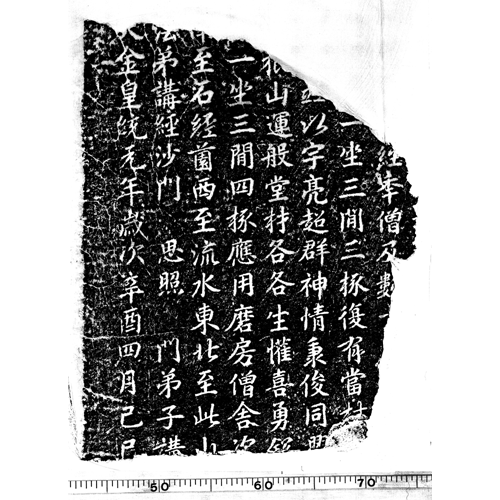 經本僧及數
一坐三間三椽復有當村
以字亮超群神情秉俊同
山運般堂材各各生懽喜勇
一坐三間四椽應用磨房僧舍次
至石經薗西至流水東北至此山
法弟講經沙門 思照 門弟子講
大金皇統元年歲次辛酉四月己巳
50 60 70